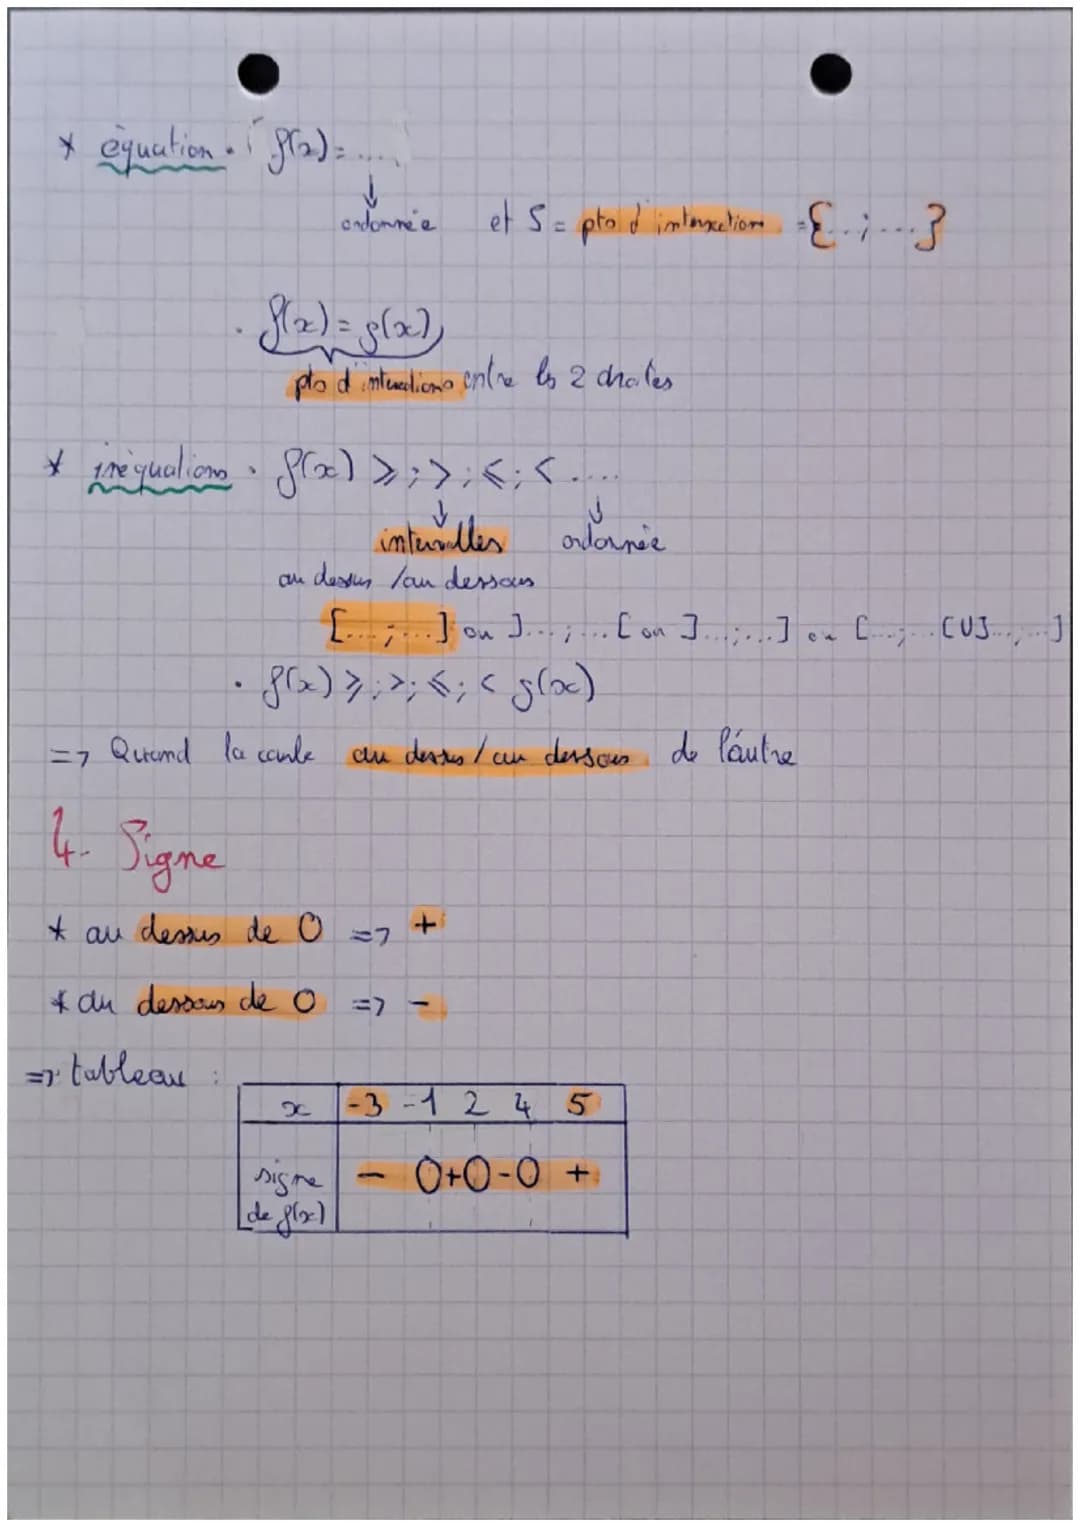 * équation . f(x) = ....
ordonnée et S = pts d'intersections = {...;....}
. f(x) = g(x)
pts d'intersections entre les 2 droites
* inéquations . f(x) ⩾ ; > ; ⩽ ; < ....
intervalles ordonnée
au dessus / au dessous
[....;....] ou ]....;....[ ou ]....;....] ou [....;....[U]....;....]
. f(x) ⩾ ; > ; ⩽ ; < g(x)
=> Quand la courbe au dessus / au dessous de l'autre
4. Signe
* au dessus de 0 => +
* au dessous de 0 => -
=> tableau :
x -3 -1 2 4 5
signe - 0 + 0 - 0 +
de f(x)